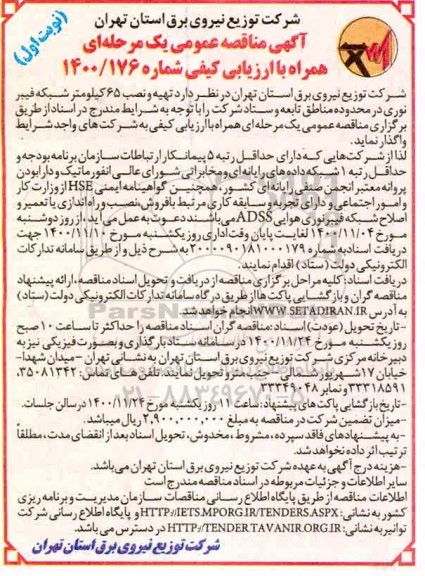 (نوبت اول)
شرکت توزیع نیروی برق استان تهران
آگهی مناقصه عمومی یک مرحله‌ای
همراه با ارزیابی کیفی شماره ۱۴۰۰/۱۷۶
شرکت توزیع نیروی برق استان تهران در نظر دارد تهیه و نصب ۶۵ کیلومتر شبکه فیبر
نوری در محدوده مناطق تابعه و ستاد شرکت را با توجه به شرایط مندرج در اسناد از طریق
برگزاری مناقصه عمومی یک مرحله ای همراه با ارزیابی کیفی به شرکت های واجد شرایط
واگذار نماید.
لذا از شرکت‌هایی که دارای حداقل رتبه ۵ پیمانکار ارتباطات سازمان برنامه بودجه و
حداقل رتبه ۱ شبکه داده های رایانه ای و مخابراتی شورای عالی انفورماتیک و دارا بودن
پروانه معتبر انجمن صنفی رایانه ای کشور، همچنین گواهینامه ایمنی HSE از وزارت کار
و امور اجتماعی و دارای تجربه و سابقه کاری مرتبط با فروش، نصب و راه اندازی یا تعمیر و
اصلاح شبکه فیبر نوری هوایی ADSS می باشند دعوت به عمل می آید، از روز دوشنبه
مورخ ۱۴۰۰/۱۱/۰۴ لغایت پایان وقت اداری روز یکشنبه مورخ ۱۴۰۰/۱۱/۱۰ جهت
دریافت اسناد به شماره ۲۰۰۰۰۹۰۱۸۱۰۰۰۱۷۹ به شرح ذیل و از طریق سامانه تدارکات
الکترونیکی دولت (ستاد) اقدام نمایند.
دریافت اسناد: کلیه مراحل برگزاری مناقصه از دریافت و تحویل اسناد مناقصه، ارائه پیشنهاد
مناقصه گران و بازگشایی پاکت ها از طریق درگاه سامانه تدارکات الکترونیکی دولت (ستاد)
به آدرس WWW.SETADIRAN.IR انجام خواهد شد.
-تاریخ تحویل (عودت) اسناد: مناقصه گران اسناد مناقصه را حداکثر تا ساعت ۱۰ صبح
روز یکشنبه مورخ ۱۴۰۰/۱۱/۲۴ در سامانه ستاد بارگذاری و بصورت فیزیکی نیز به
دبیرخانه مرکزی شرکت توزیع نیروی برق استان تهران به نشانی تهران -میدان شهدا-
خیابان ۱۷ شهریور شمالی- جنب مترو تحویل نمایند. تلفن های تماس: ۳۵۰۸۱۳۴۲،
۳۳۳۱۸۵۹۱ و نمابر ۳۳۳۴۹۰۴۸
-تاریخ بازگشایی پاکت های پیشنهاد: ساعت ۱۱ روز یکشنبه مورخ ۱۴۰۰/۱۱/۲۴ در سالن جلسات.
-میزان تضمین شرکت در مناقصه به مبلغ ۲,۹۰۰,۰۰۰,۰۰۰ ریال میباشد.
-به پیشنهادهای فاقد سپرده، مشروط، مخدوش، تحویل اسناد بعد از انقضای مدت، مطلقاً
ترتیب اثر داده نخواهد شد.
-هزینه درج آگهی به عهده شرکت توزیع نیروی برق استان تهران می باشد.
سایر اطلاعات و جزئیات مربوطه در اسناد مناقصه مندرج است
اطلاعات مناقصه از طریق پایگاه اطلاع رسانی مناقصات سازمان مدیریت و برنامه ریزی
کشور به نشانی: HTTP://IETS.MPORG.IR/TENDERS.ASPX و پایگاه اطلاع رسانی شرکت
توانیر به نشانی: HTTP://TENDER.TAVANIR.ORG.IR در دسترس می باشد.
شرکت توزیع نیروی برق استان تهران